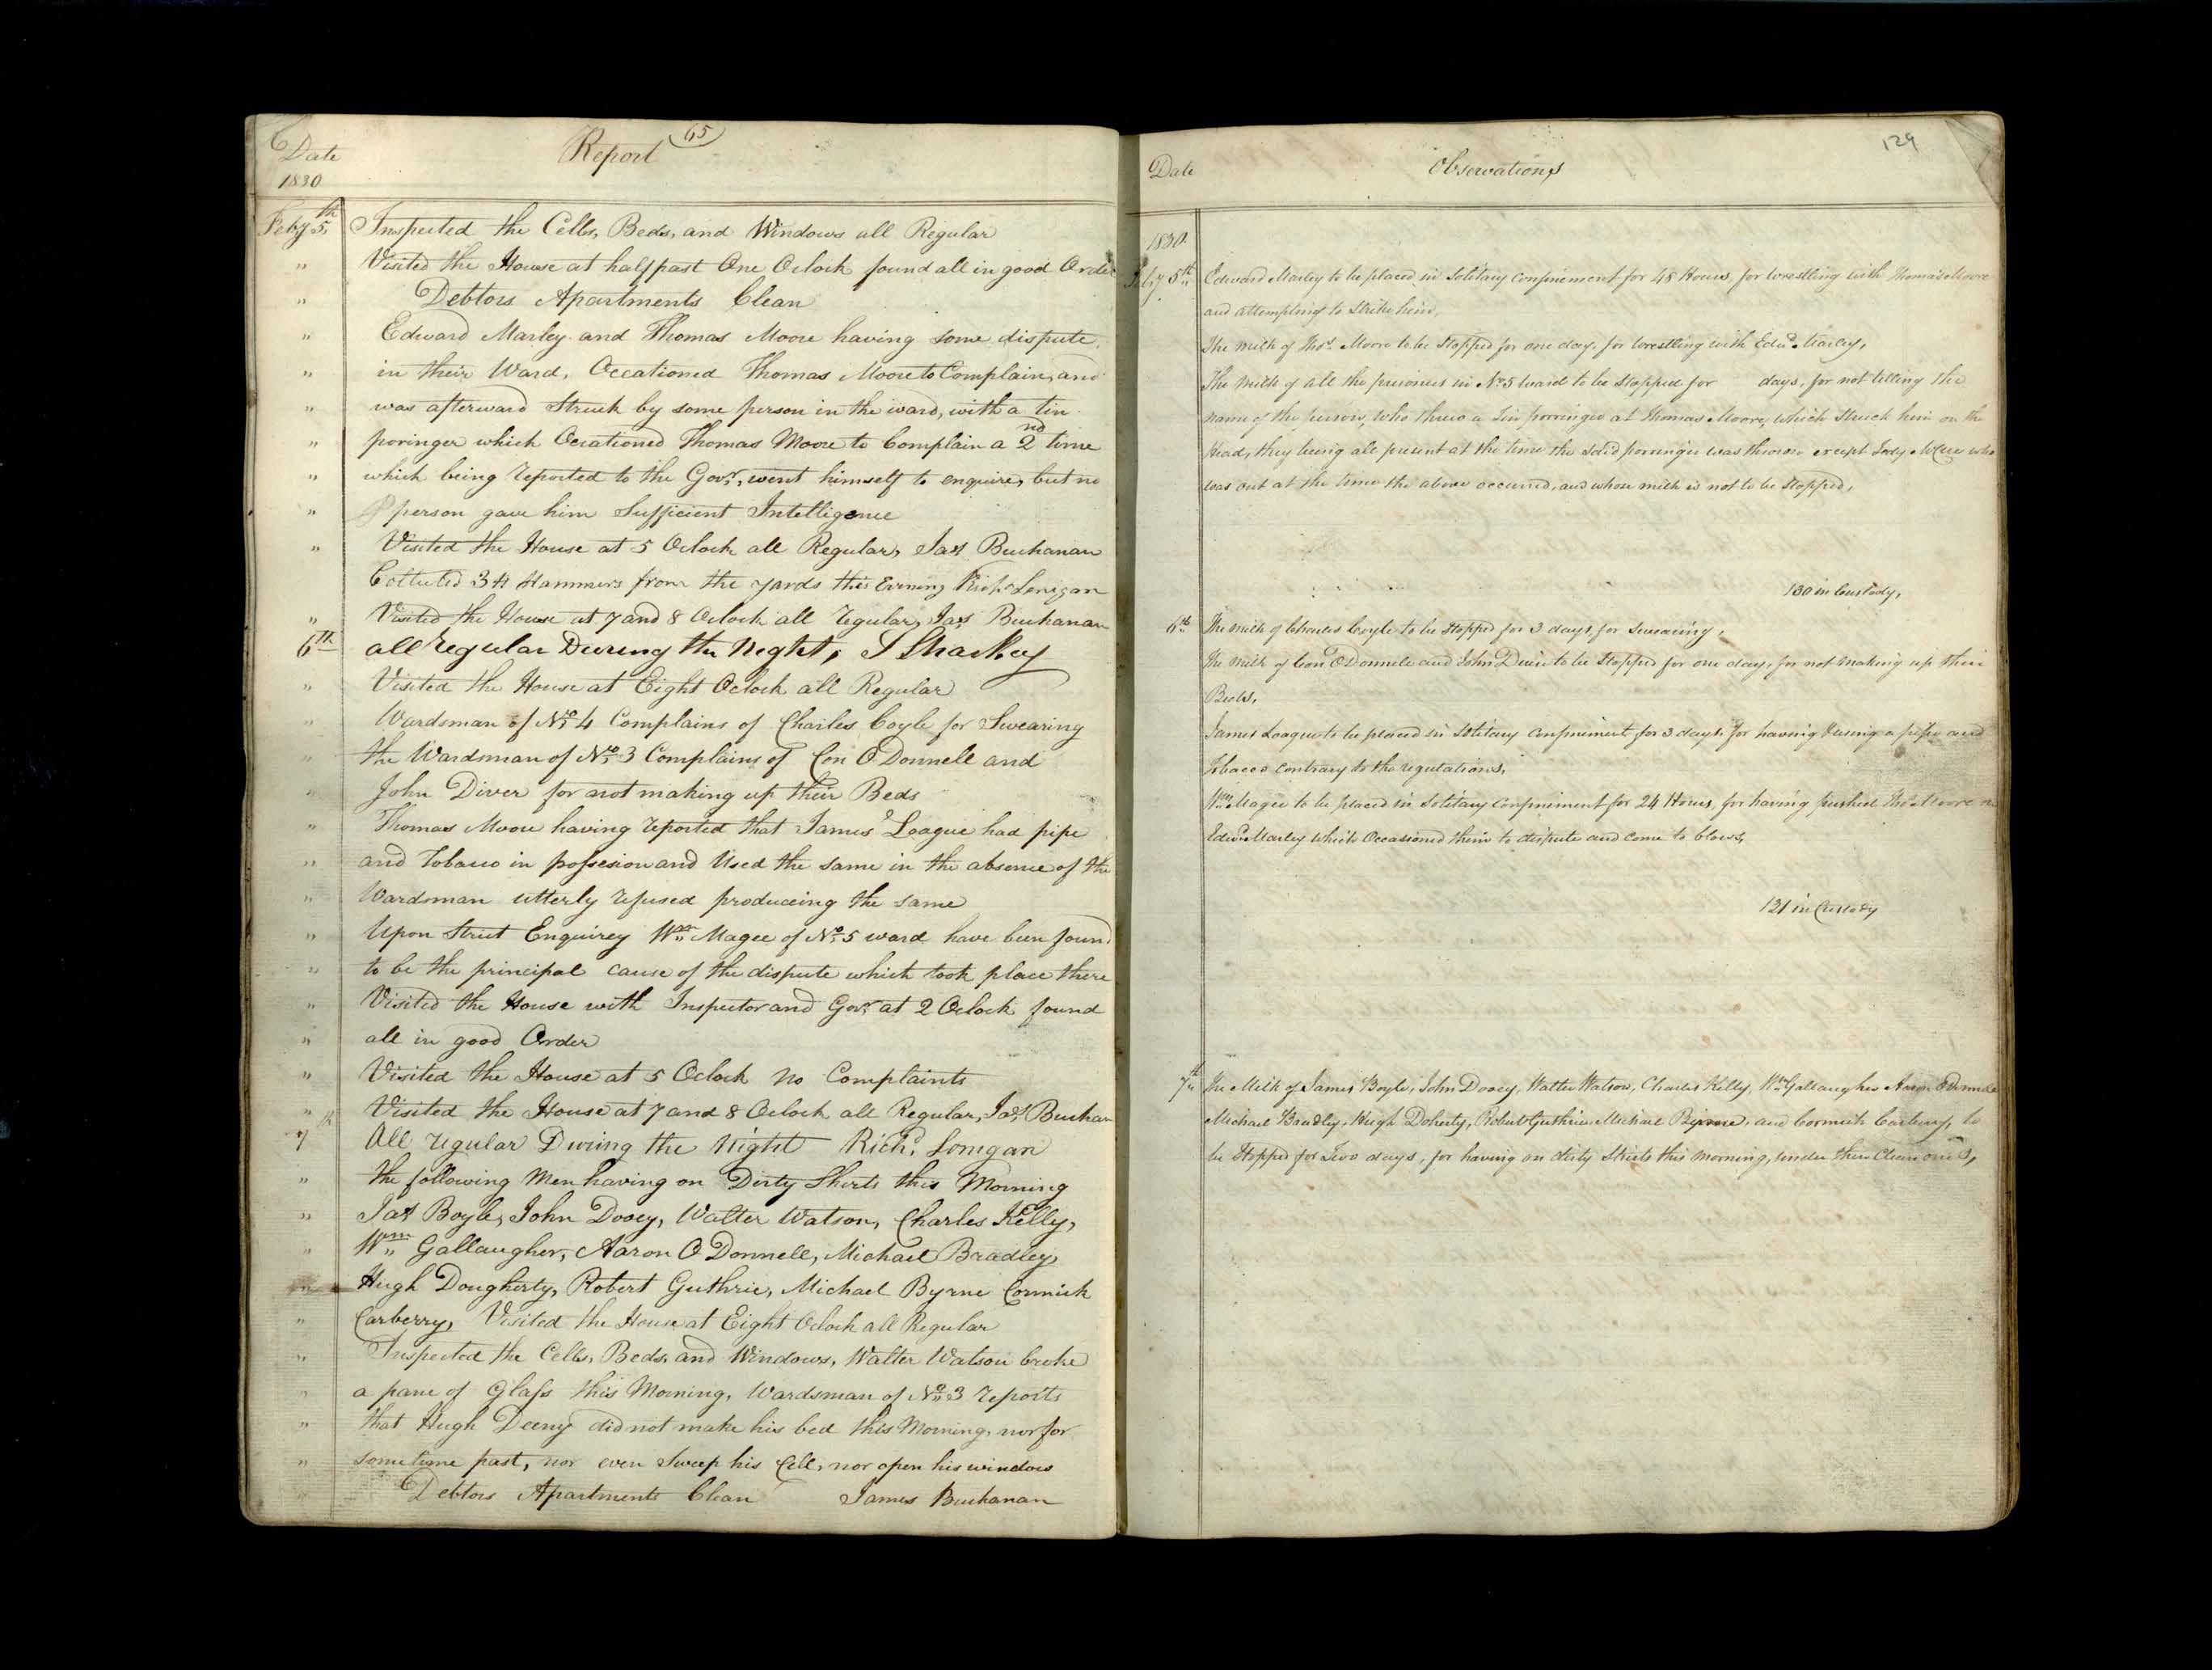 65
Date Report
1830
Feby 5th Inspected the Cells, Beds, and Windows all Regular
" Visited the House at half past One Oclock found all in good Order
" Debtors Apartments Clean
" Edward Marley and Thomas Moore having some dispute,
" in their Ward, Occationed Thomas Moore to Complain, and
" was afterward Struck by some person in the ward, with a tin
" poringer which Occationed Thomas Moore to Complain a 2nd time
" which being reported to the Govr., went himself to enquire, but no
" person gave him Sufficient Intelligence
" Visited the House at 5 Oclock all Regular, Jas Buchanan
Collected 34 Hammers from the yards this Evening Richd Lonigan
" Visited the House at 7 and 8 Oclock all regular, Jas Buchanan
6th all regular During the Night, J Sharkey
" Visited the House at Eight Oclock all Regular
" Wardsman of No. 4 Complains of Charles Coyle for Swearing
" the Wardsman of No. 3 Complains of Con O Donnell and
" John Diver for not making up their Beds
" Thomas Moore having reported that James Loague had pipe
" and Tobacco in possesion and Used the same in the absence of the
" Wardsman utterly refused produceing the same
" Upon Strict Enquirey Wm Magee of No. 5 ward have been found
" to be the principal cause of the dispute which took place there
" Visited the House with Inspector and Govr. at 2 Oclock found
" all in good Order
" Visited the House at 5 Oclock no Complaints
" Visited the House at 7 and 8 Oclock all Regular, Jas Buchan
7th All regular During the Night Richd. Lonigan
" the following Men having on Dirty Shirts this Morning
" Jas Boyle, John Dooey, Walter Watson, Charles Kelly,
" Wm Gallaugher, Aaron O Donnell, Michael Bradley
" Hugh Dougherty, Robert Guthrie, Michael Byrne Cormick
" Carberry, Visited the House at Eight Oclock all Regular
" Inspected the Cells, Beds, and Windows, Walter Watson broke
" a pane of Glass this Morning, Wardsman of No. 3 reports
" that Hugh Deeny did not make his bed this Morning, nor for
" some time past, nor even Sweep his Cell, nor open his window
" Debtors Apartments Clean James Buchanan
129
Date Observations
1830
Feby 5th Edward Marley to be placed in Solitary Confinement for 48 Hours, for wrestling with Thomas Moore
and attempting to Strike him,
The milk of Thos. Moore to be Stopped for one day, for wrestling with Edwd. Marley,
The milk of all the prisoners in No. 5 ward to be Stopped for days, for not telling the
name of the person, who threw a Tin porringer at Thomas Moore, which Struck him on the
Head, they being all present at the time the said porringer was thrown except Jody McCue who
was out at the time the above occurred, and whose milk is not to be Stopped,
130 in Custody,
6th The milk of Charles Coyle to be Stopped for 3 days, for Swearing,
The milk of Con O Donnell and John Diver to be Stopped for one day, for not making up their
Beds,
James Loague to be placed in Solitary Confinement for 3 days, for having & using a pipe and
Tobacco contrary to the regulations,
Wm Magee to be placed in Solitary Confinement for 24 Hours, for having pushed Thos Moore on
Edwd Marley which Occasioned them to dispute and come to blows,
131 in Custody
7th The Milk of James Boyle, John Dooey, Walter Watson, Charles Kelly, Wm Gallaugher Aaron O Donnell
Michael Bradley, Hugh Doherty, Robert Guthrie, Michael Byrne, and Cormick Carbery, to
be Stopped for Two days, for having on dirty Shirts this morning, under their Clean ones,